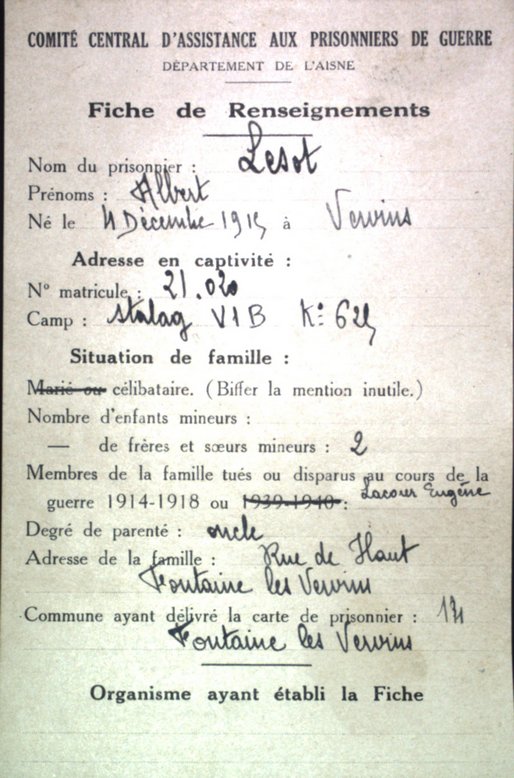 COMITÉ CENTRAL D'ASSISTANCE AUX PRISONNIERS DE GUERRE
DÉPARTEMENT DE L'AISNE
Fiche de Renseignements
Nom du prisonnier : Lesot
Prénoms : Albert
Né le Décembre à Vervins
Adresse en captivité :
N° matricule : 21.020
Camp : Stalag VI B
Situation de famille :
Marié ou célibataire. (Biffer la mention inutile.)
Nombre d'enfants mineurs :
— de frères et sœurs mineurs : 2
Membres de la famille tués ou disparus au cours de la
guerre 1914-1918 ou 1939-1940 : Lacour Eugène
Degré de parenté : oncle
Adresse de la famille : Rue de Haut
Fontaine les Vervins
Commune ayant délivré la carte de prisonnier :
Fontaine les Vervins
Organisme ayant établi la Fiche